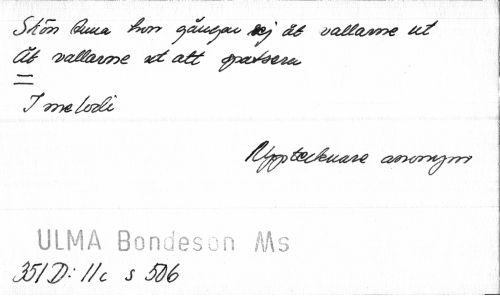 Skön Anna hon gångar sej åt vallarne ut
Åt vallarne ut att spatsera
=
I melodi
Upptecknare anonym
ULMA Bondeson Ms
351 D: 11c s 506